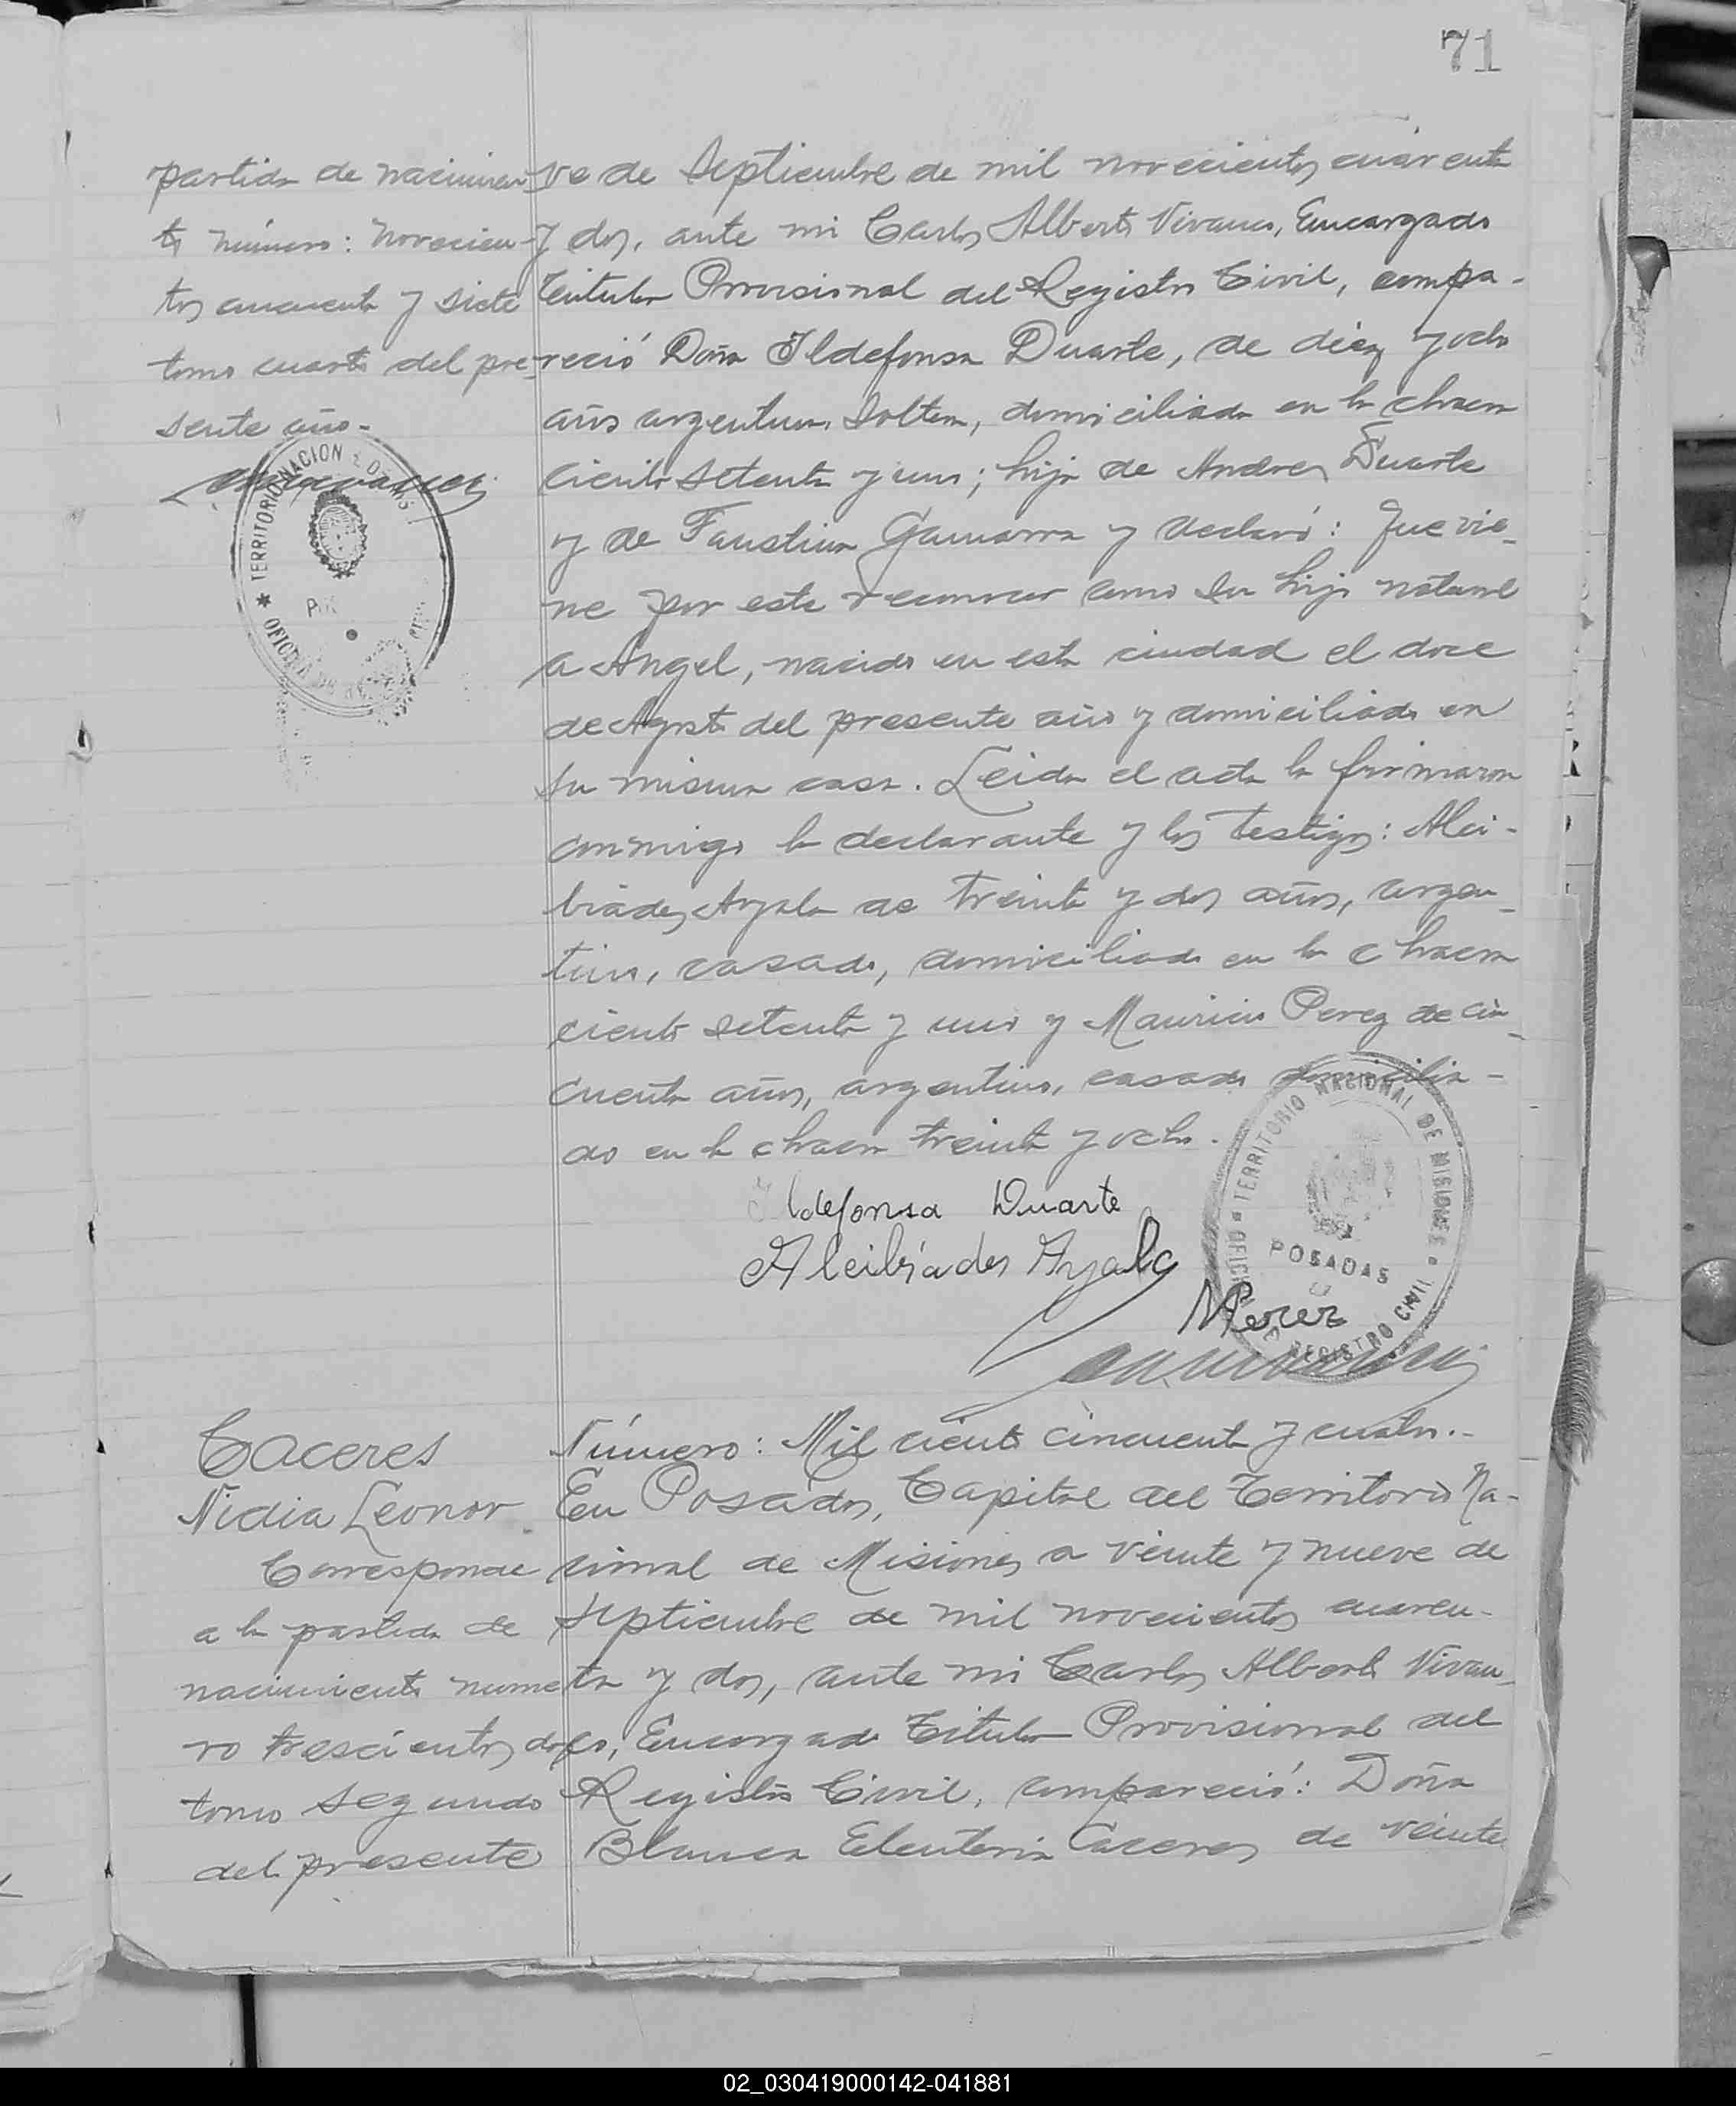 71
partida de nacimien-
to número: novecien-
tos cincuenta y siete
tomo cuarto del pre-
sente año.-
TERRITORIO NACION
OFICI
ve de Septiembre de mil novecientos cuarenta
y dos, ante mi Carlos Alberto Vivanco, Encargado
Titular Provisional del Registro Civil, compa-
reció Doña Ildefonsa Duarte, de diez y ocho
años argentina, soltera, domiciliada en la chacra
ciento setenta y uno; hija de Andres Duarte
y de Faustina Gamarra y declaró: Que vie-
ne por este reconocer como su hijo natural
a Angel, nacido en esta ciudad el doce
de Agosto del presente año y domiciliado en
su misma casa. Leida el acta la firmaron
conmigo la declarante y los testigos: Alci-
biades Ayala de treinta y dos años, argen-
tino, casado, domiciliado en la chacra
ciento setenta y uno y Mauricio Perez de cin-
cuenta años, argentino, casado domicilia-
do en la chacra treinta y ocho.
Ildefonsa Duarte
Alcibíades Ayala
MPerez
TERRITORIO NACIONAL DE MISIONES
POSADAS
REGISTRO CIVIL
Caceres
Nidia Leonor
Corresponde
a la partida de
nacimiento nume-
ro trescientos dos
tomo segundo
del presente
Número: Mil ciento cincuenta y cuatro.-
En Posadas, Capital del Territorio Na-
cional de Misiones a veinte y nueve de
Septiembre de mil novecientos cuaren-
ta y dos, ante mi Carlos Alberto Vivan-
co, Encargado Titular Provisional del
Registro Civil, compareció: Doña
Blanca Eleuteria Caceres de veinte
02_030419000142-041881